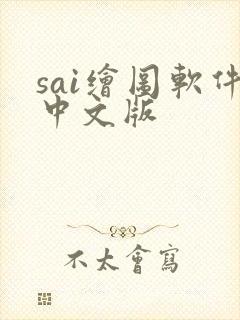 sai繪圖軟件
中文版
不太會寫